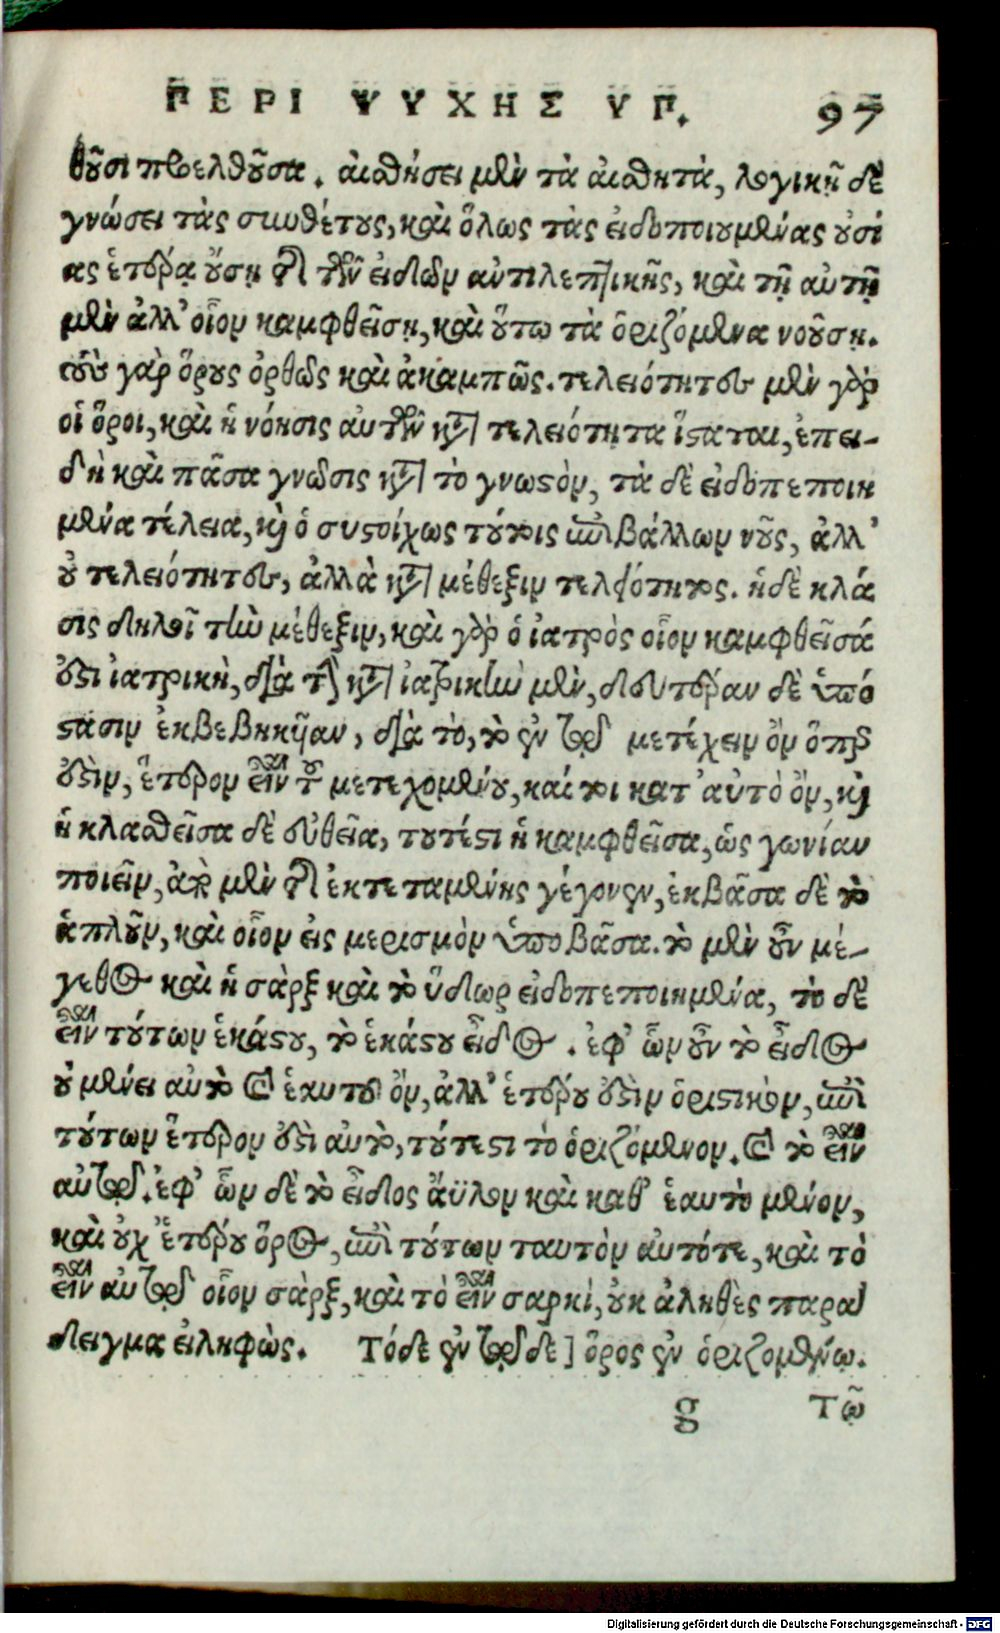 ΠΕΡΙ ΨΥΧΗΣ ΥΠ. 97
θοῦσι προελθοῦσα. αἰσθήσει μὲν τὰ αἰσθητὰ, λογικῇ δὲ
γνώσει τὰς συνθέτους, καὶ ὅλως τὰς εἰδοποιουμένας οὐσί
ας ἑτέρᾳ οὔσῃ τῆς τῶν εἰδῶν ἀντιλεπτικῆς, καὶ τῇ αὐτῇ
μὲν ἀλλ' οἷον καμφθεῖσῃ, καὶ οὕτω τὰ ὁριζόμενα νοούσῃ.
τοὺς γὰρ ὅρους ὀρθῶς καὶ ἀκάμπως. τελειότητες μὲν γὰρ
οἱ ὅροι, καὶ ἡ νόησις αὐτῶν κατὰ τελειότητα ἵσταται, ἐπει-
δὴ καὶ πᾶσα γνῶσις κατὰ τὸ γνωστὸν, τὰ δὲ εἰδοπεποιη
μένα τέλεια, καὶ ὁ συστοίχως τούτοις ἐπιβάλλων νοῦς, ἀλλ'
οὐ τελειότητες, ἀλλὰ κατὰ μέθεξιν τελειότητος. ἡ δὲ κλά
σις δηλοῖ τὴν μέθεξιν, καὶ γὰρ ὁ ἰατρὸς οἷον καμφθεῖσά
ἐστι ἰατρικὴ, διὰ τὴν κατὰ ἰατρικὴν μὲν, δευτέραν δὲ ὑπό
στασιν ἐκβεβηκυῖαν, διὰ τὸ, τὸ ἐν τῷ μετέχειν ὂν ὅπερ
ἐστὶν, ἕτερον εἶναι τοῦ μετεχομένου, καί τοι κατ' αὐτὸ ὂν, καὶ
ἡ κλασθεῖσα δὲ εὐθεῖα, τουτέστι ἡ καμφθεῖσα, ὡς γωνίαν
ποιεῖν, ἀπὸ μὲν τῆς ἐκτεταμένης γέγονεν, ἐκβᾶσα δὲ τὸ
ἁπλοῦν, καὶ οἷον εἰς μερισμὸν ὑποβᾶσα. τὸ μὲν οὖν μέ-
γεθος καὶ ἡ σὰρξ καὶ τὸ ὕδωρ εἰδοπεποιημένα, τὸ δὲ
εἶναι τούτων ἑκάστου, τὸ ἑκάστου εἶδος. ἐφ' ὧν οὖν τὸ εἶδος
οὐ μένει αὐτὸ ἐφ' ἑαυτοῦ ὂν, ἀλλ' ἑτέρου ἐστὶν ὁριστικὸν, ἐπὶ
τούτων ἕτερον ἐστὶ αὐτὸ, τούτεστι τὸ ὁριζόμενον. καὶ τὸ εἶναι
αὐτῷ. ἐφ' ὧν δὲ τὸ εἶδος ἄϋλον καὶ καθ' ἑαυτὸ μένον,
καὶ οὐχ' ἑτέρου ὅρος, ἐπὶ τούτων ταυτὸν αὐτότε, καὶ τὸ
εἶναι αὐτῷ οἷον σὰρξ, καὶ τὸ εἶναι σαρκὶ, οὐκ ἀληθὲς παρά
δειγμα εἰληφὼς. Τόδε ἐν τῷδε] ὅρος ἐν ὁριζομένῳ.
g Τῶ
Digitalisierung gefördert durch die Deutsche Forschungsgemeinschaft - DFG